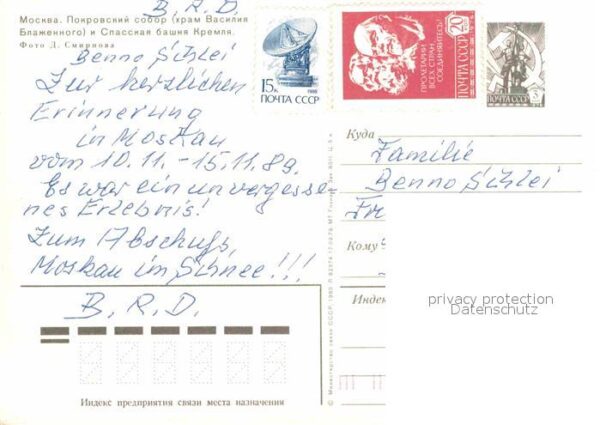 B. R. D.
Москва. Покровский собор (храм Василия
Блаженного) и Спасская башня Кремля.
Фото Д. Смирнова
Benno
Zur herzlichen
Erinnerung
in Moskau
vom 10.11.-15.11.89.
Es war ein unvergesse
nes Erlebnis!
Zum Abschuss,
Moskau im Schnee!!!
B. R. D.
Индекс предприятия связи места назначения
15к
1988
ПОЧТА СССР
ПРОЛЕТАРИИ
ВСЕХ СТРАН
СОЕДИНЯЙТЕСЬ!
ПОЧТА СССР 20
ПОЧТА СССР 3
Куда
Familie
Benno
Fr
Кому
Индек
© Министерство связи СССР, 1980
privacy protection
Datenschutz